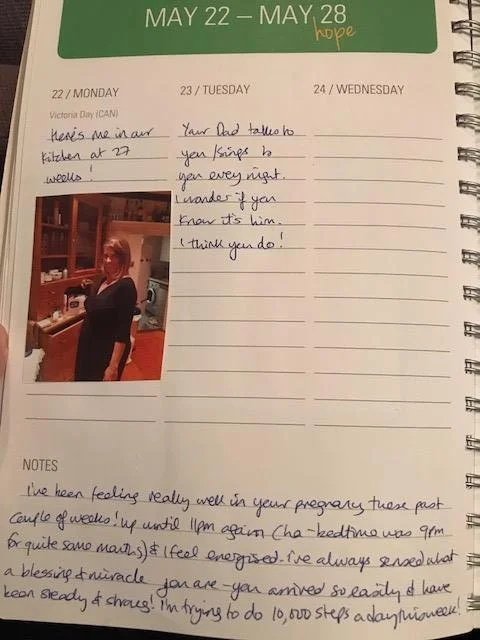 MAY 22 – MAY 28
hope
22 / MONDAY
Victoria Day (CAN)
Here's me in our
kitchen at 27
weeks!
23 / TUESDAY
Your Dad talks to
you /sings to
you every night.
I wonder if you
know it's him.
I think you do!
24 / WEDNESDAY
NOTES
I've been feeling really well in your pregnancy these past
couple of weeks! Up until 11pm again (ha - bedtime was 9pm
for quite some months) & I feel energised. I've always sensed what
a blessing & miracle you are - you arrived so easily & have
been steady & strong! I'm trying to do 10,000 steps a day this week!